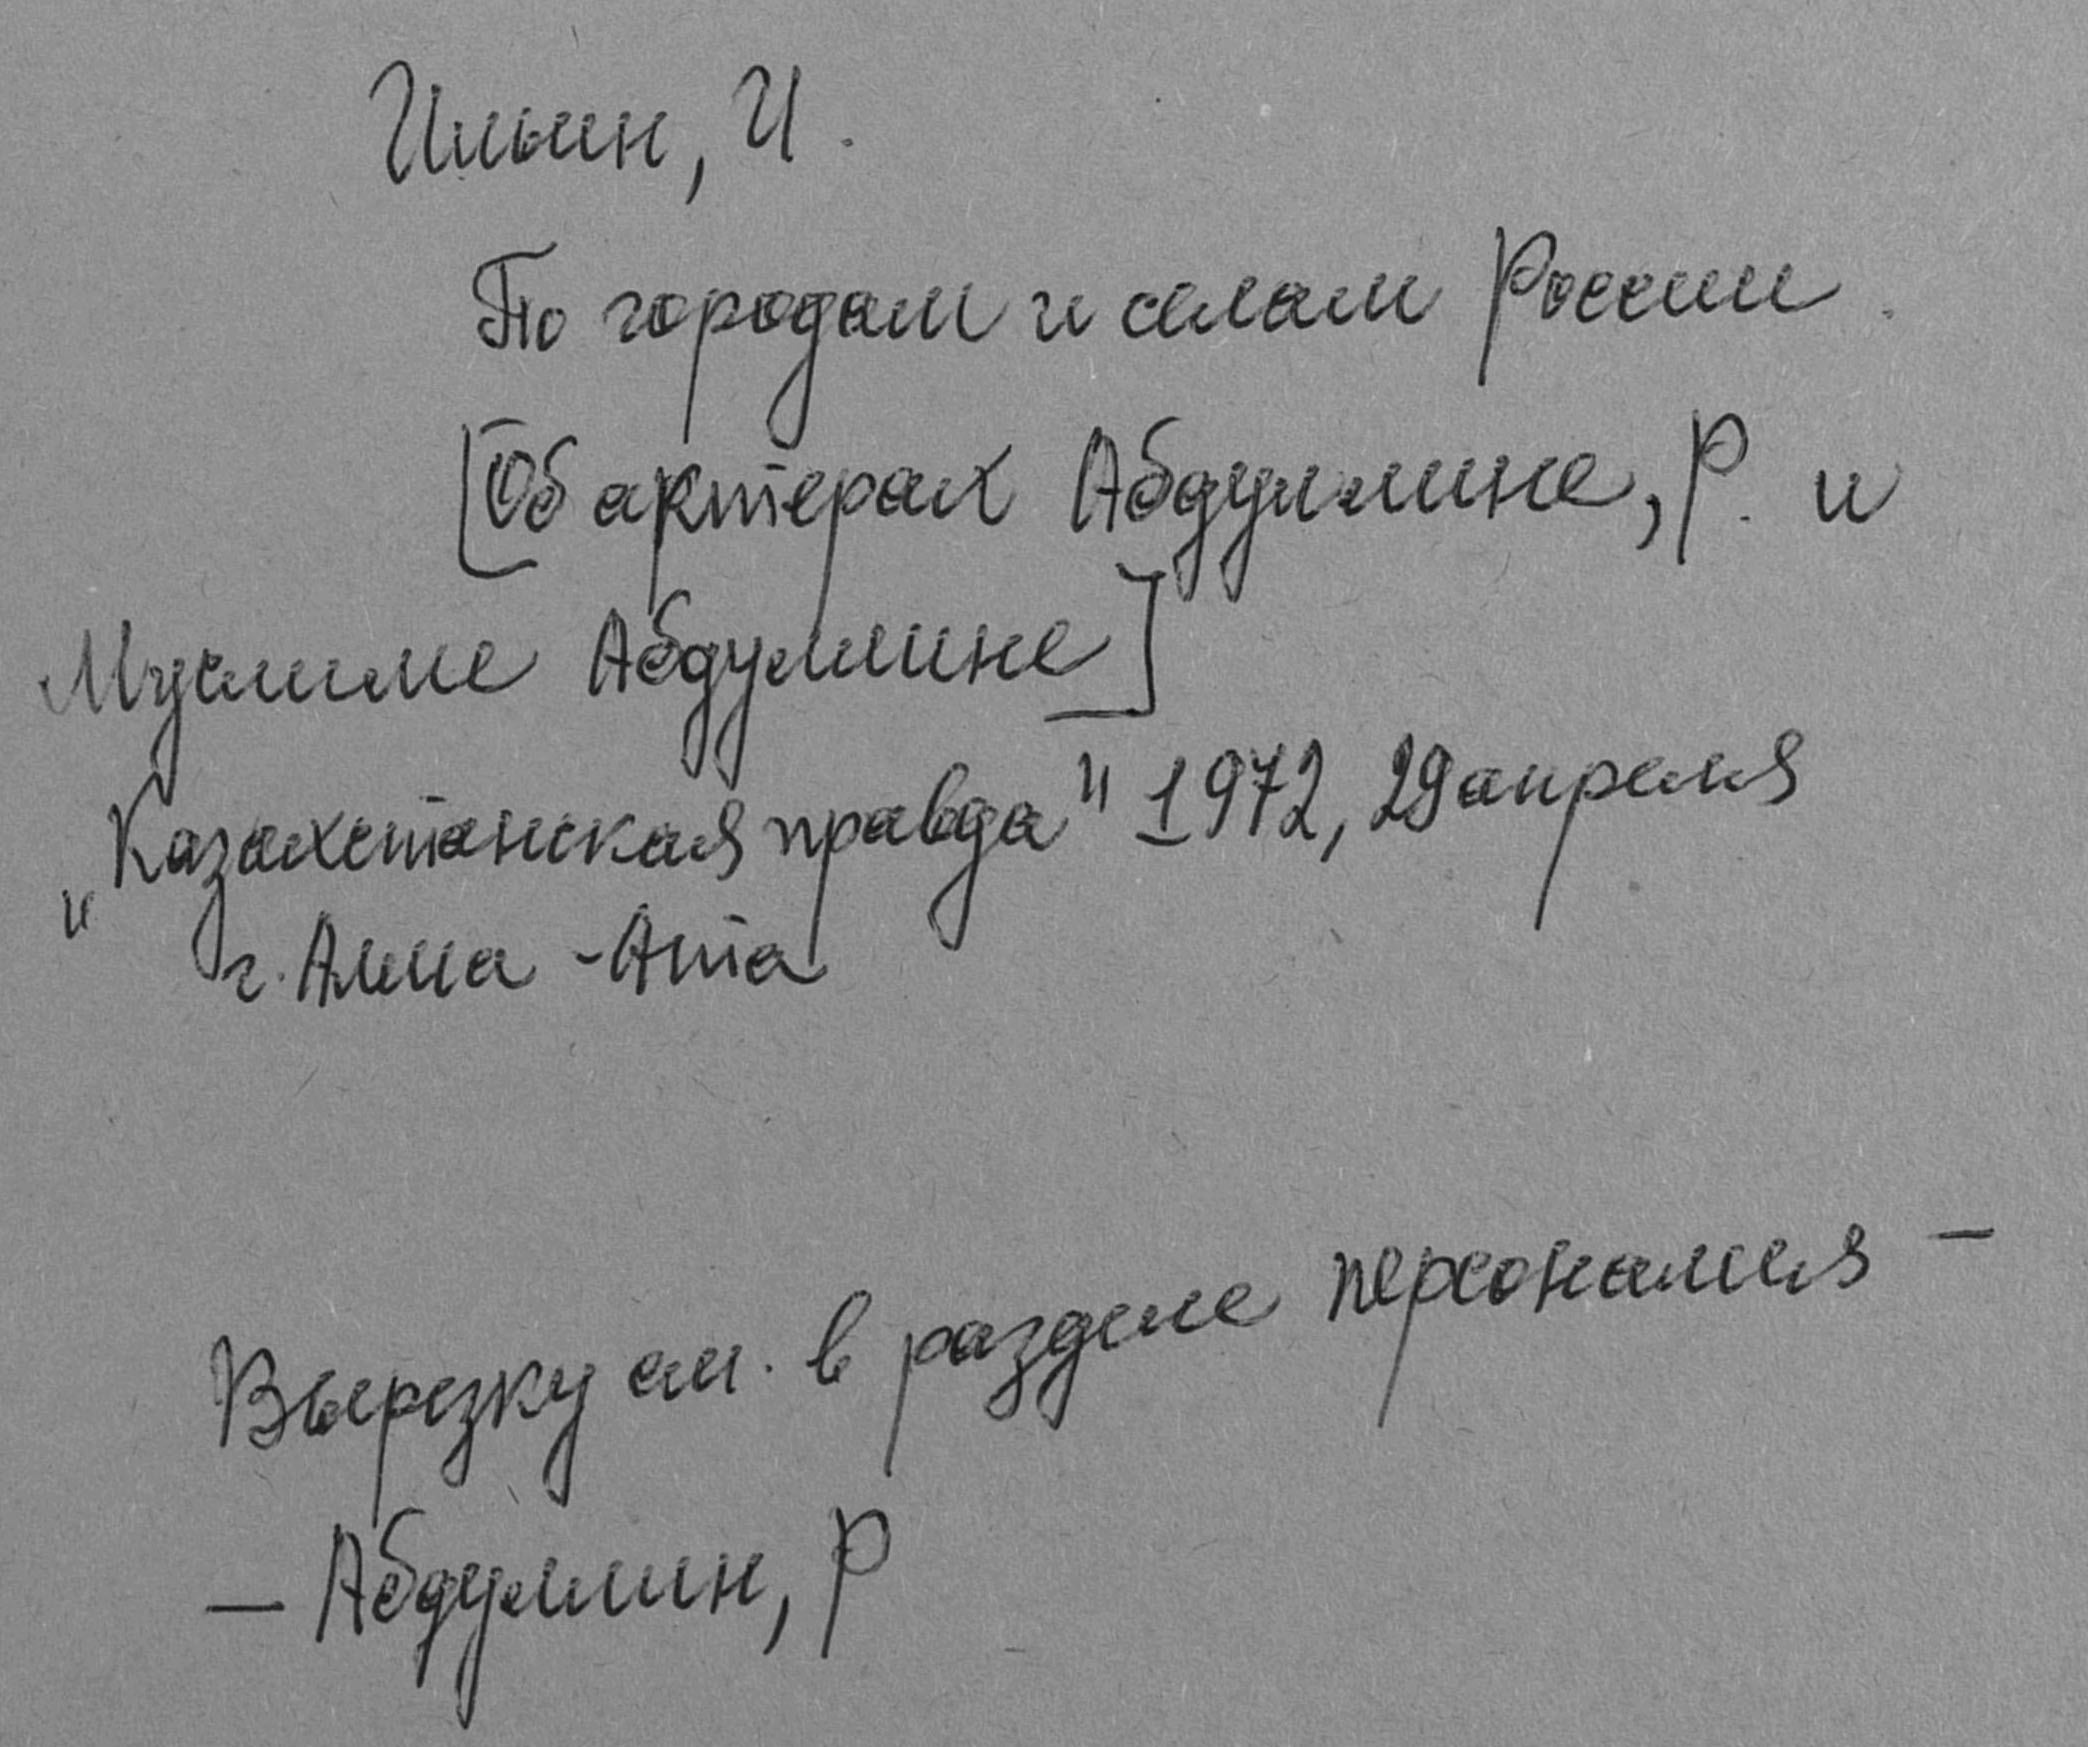 Ильин, И.
По городам и селам России.
[Об актерах Абдуллине, Р. и
Муслиме Абдуллине]
„Казахстанская правда" 1972, 29 апреля
г. Алма-Ата
Вырезку см. в разделе персоналия —
— Абдуллин, Р